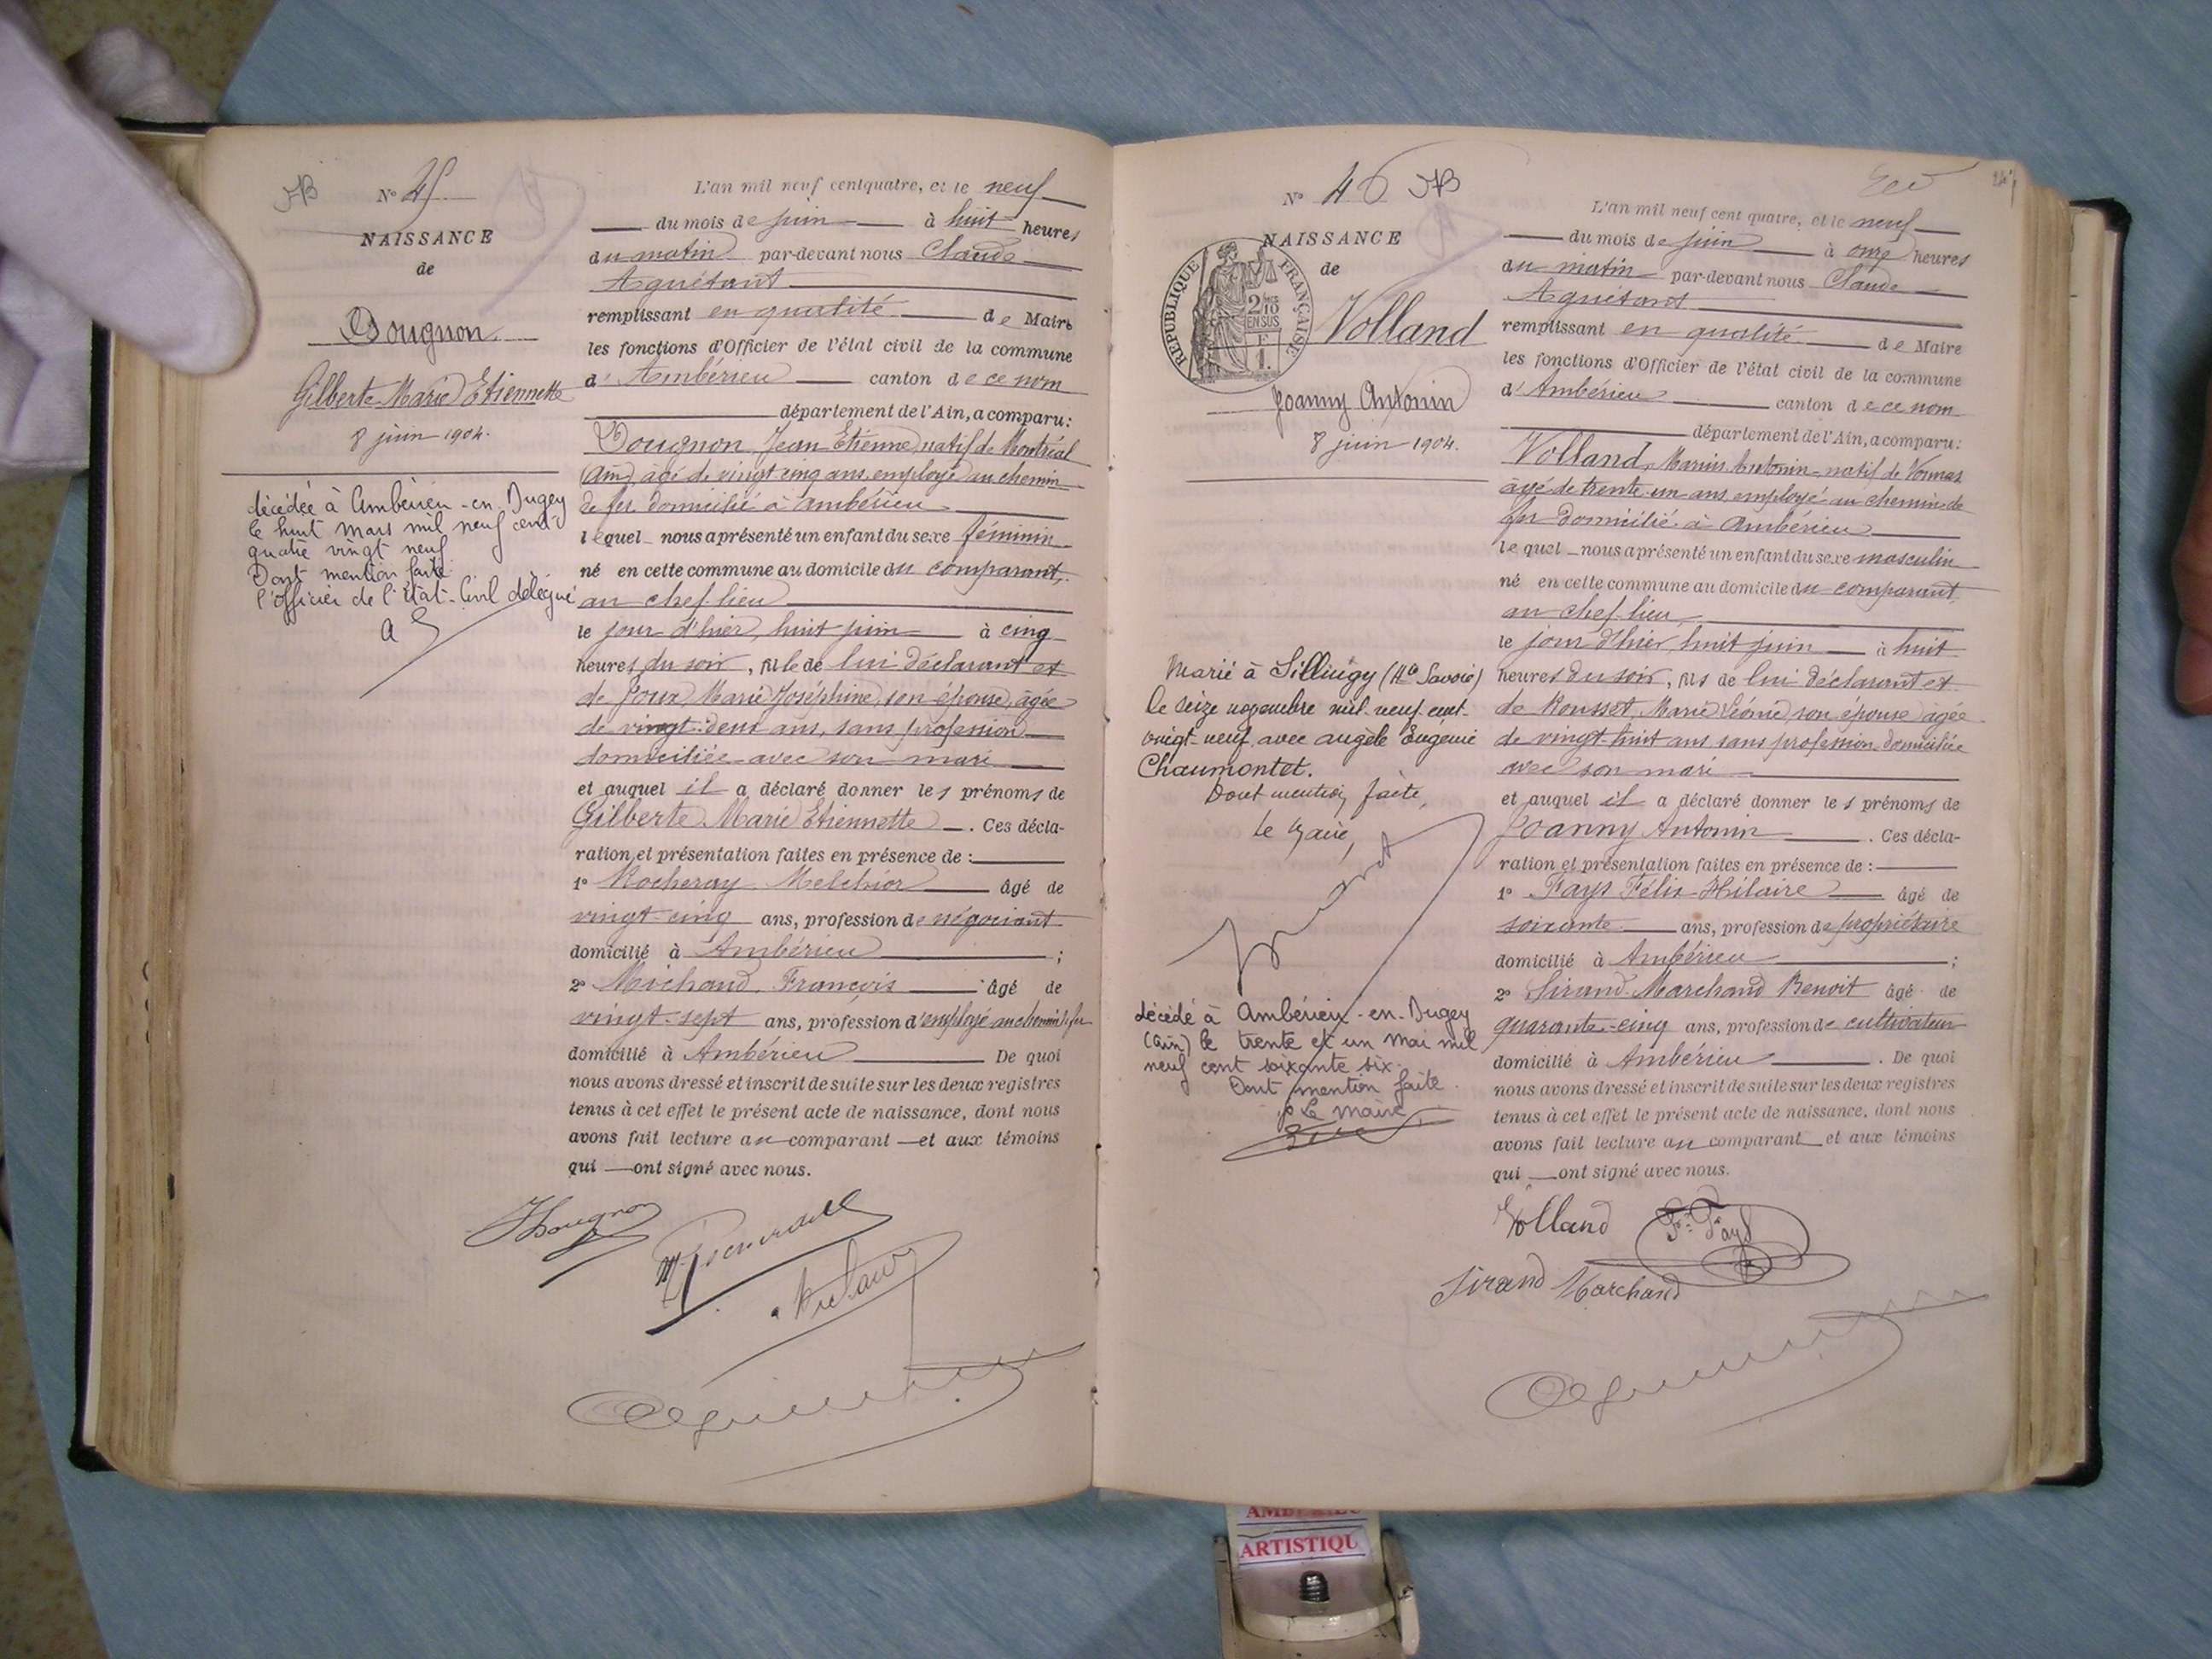 N° 45
NAISSANCE
de
Dougnon
Gilberte Marie Etiennette
8 juin 1904.
décédée à Ambérieu-en-Bugey
le huit mars mil neuf cent
quatre vingt neuf
Dont mention faite
l'officier de l'état-Civil délégué
L'an mil neuf cent quatre, et le neuf
du mois de juin à huit heures
du matin par-devant nous Claude
Aguétant
remplissant en qualité de Maire
les fonctions d'Officier de l'état civil de la commune
d'Ambérieu canton de ce nom
département de l'Ain, a comparu :
Dougnon, Jean Etienne, natif de Montréal
(Ain) âgé de vingt cinq ans, employé au chemin
de fer domicilié à Ambérieu
lequel nous a présenté un enfant du sexe féminin
né en cette commune au domicile du comparant,
au chef-lieu
le jour d'hier, huit juin à cinq
heures du soir, fille de lui déclarant et
de Joux, Marie Joséphine, son épouse, âgée
de vingt-deux ans, sans profession
domiciliée avec son mari
et auquel il a déclaré donner les prénoms de
Gilberte Marie Etiennette. Ces décla-
ration et présentation faites en présence de :
1° Rocheray Melchior âgé de
vingt-cinq ans, profession de négociant
domicilié à Ambérieu ;
2° Michaud, François âgé de
vingt-sept ans, profession d'employé au chemin de fer
domicilié à Ambérieu. De quoi
nous avons dressé et inscrit de suite sur les deux registres
tenus à cet effet le présent acte de naissance, dont nous
avons fait lecture au comparant et aux témoins
qui ont signé avec nous.
JDougnon
N° 46
NAISSANCE
de
RÉPUBLIQUE FRANÇAISE
2/10
EN SUS
F
1.
Volland
Joanny Antonin
8 juin 1904.
Marié à Sillingy (Hte Savoie)
le seize novembre mil-neuf-cent-
vingt-neuf avec Angèle Eugénie
Chaumontet.
Dont mention faite,
Le Maire,
décédé à Ambérieu-en-Bugey
(Ain) le trente et un mai mil
neuf cent soixante six.
Dont mention faite.
p Le Maire
L'an mil neuf cent quatre, et le neuf
du mois de juin à onze heures
du matin par-devant nous Claude
Aguétant
remplissant en qualité de Maire
les fonctions d'Officier de l'état civil de la commune
d'Ambérieu canton de ce nom
département de l'Ain, a comparu :
Volland, Marius Antonin natif de Vonnas
âgé de trente-un ans, employé au chemin de
fer domicilié à Ambérieu
lequel nous a présenté un enfant du sexe masculin
né en cette commune au domicile du comparant,
au chef-lieu
le jour d'hier, huit juin à huit
heures du soir, fils de lui déclarant et
de Rousset, Marie Léonie, son épouse âgée
de vingt-huit ans sans profession domiciliée
avec son mari
et auquel il a déclaré donner les prénoms de
Joanny Antonin. Ces décla-
ration et présentation faites en présence de :
1° Fays Félix-Hilaire âgé de
soixante ans, profession de propriétaire
domicilié à Ambérieu ;
2° Sirand-Marchand Benoit âgé de
quarante-cinq ans, profession de cultivateur
domicilié à Ambérieu. De quoi
nous avons dressé et inscrit de suite sur les deux registres
tenus à cet effet le présent acte de naissance, dont nous
avons fait lecture au comparant et aux témoins
qui ont signé avec nous.
Volland
F. Fays
Sirand Marchand
ARTISTIQU